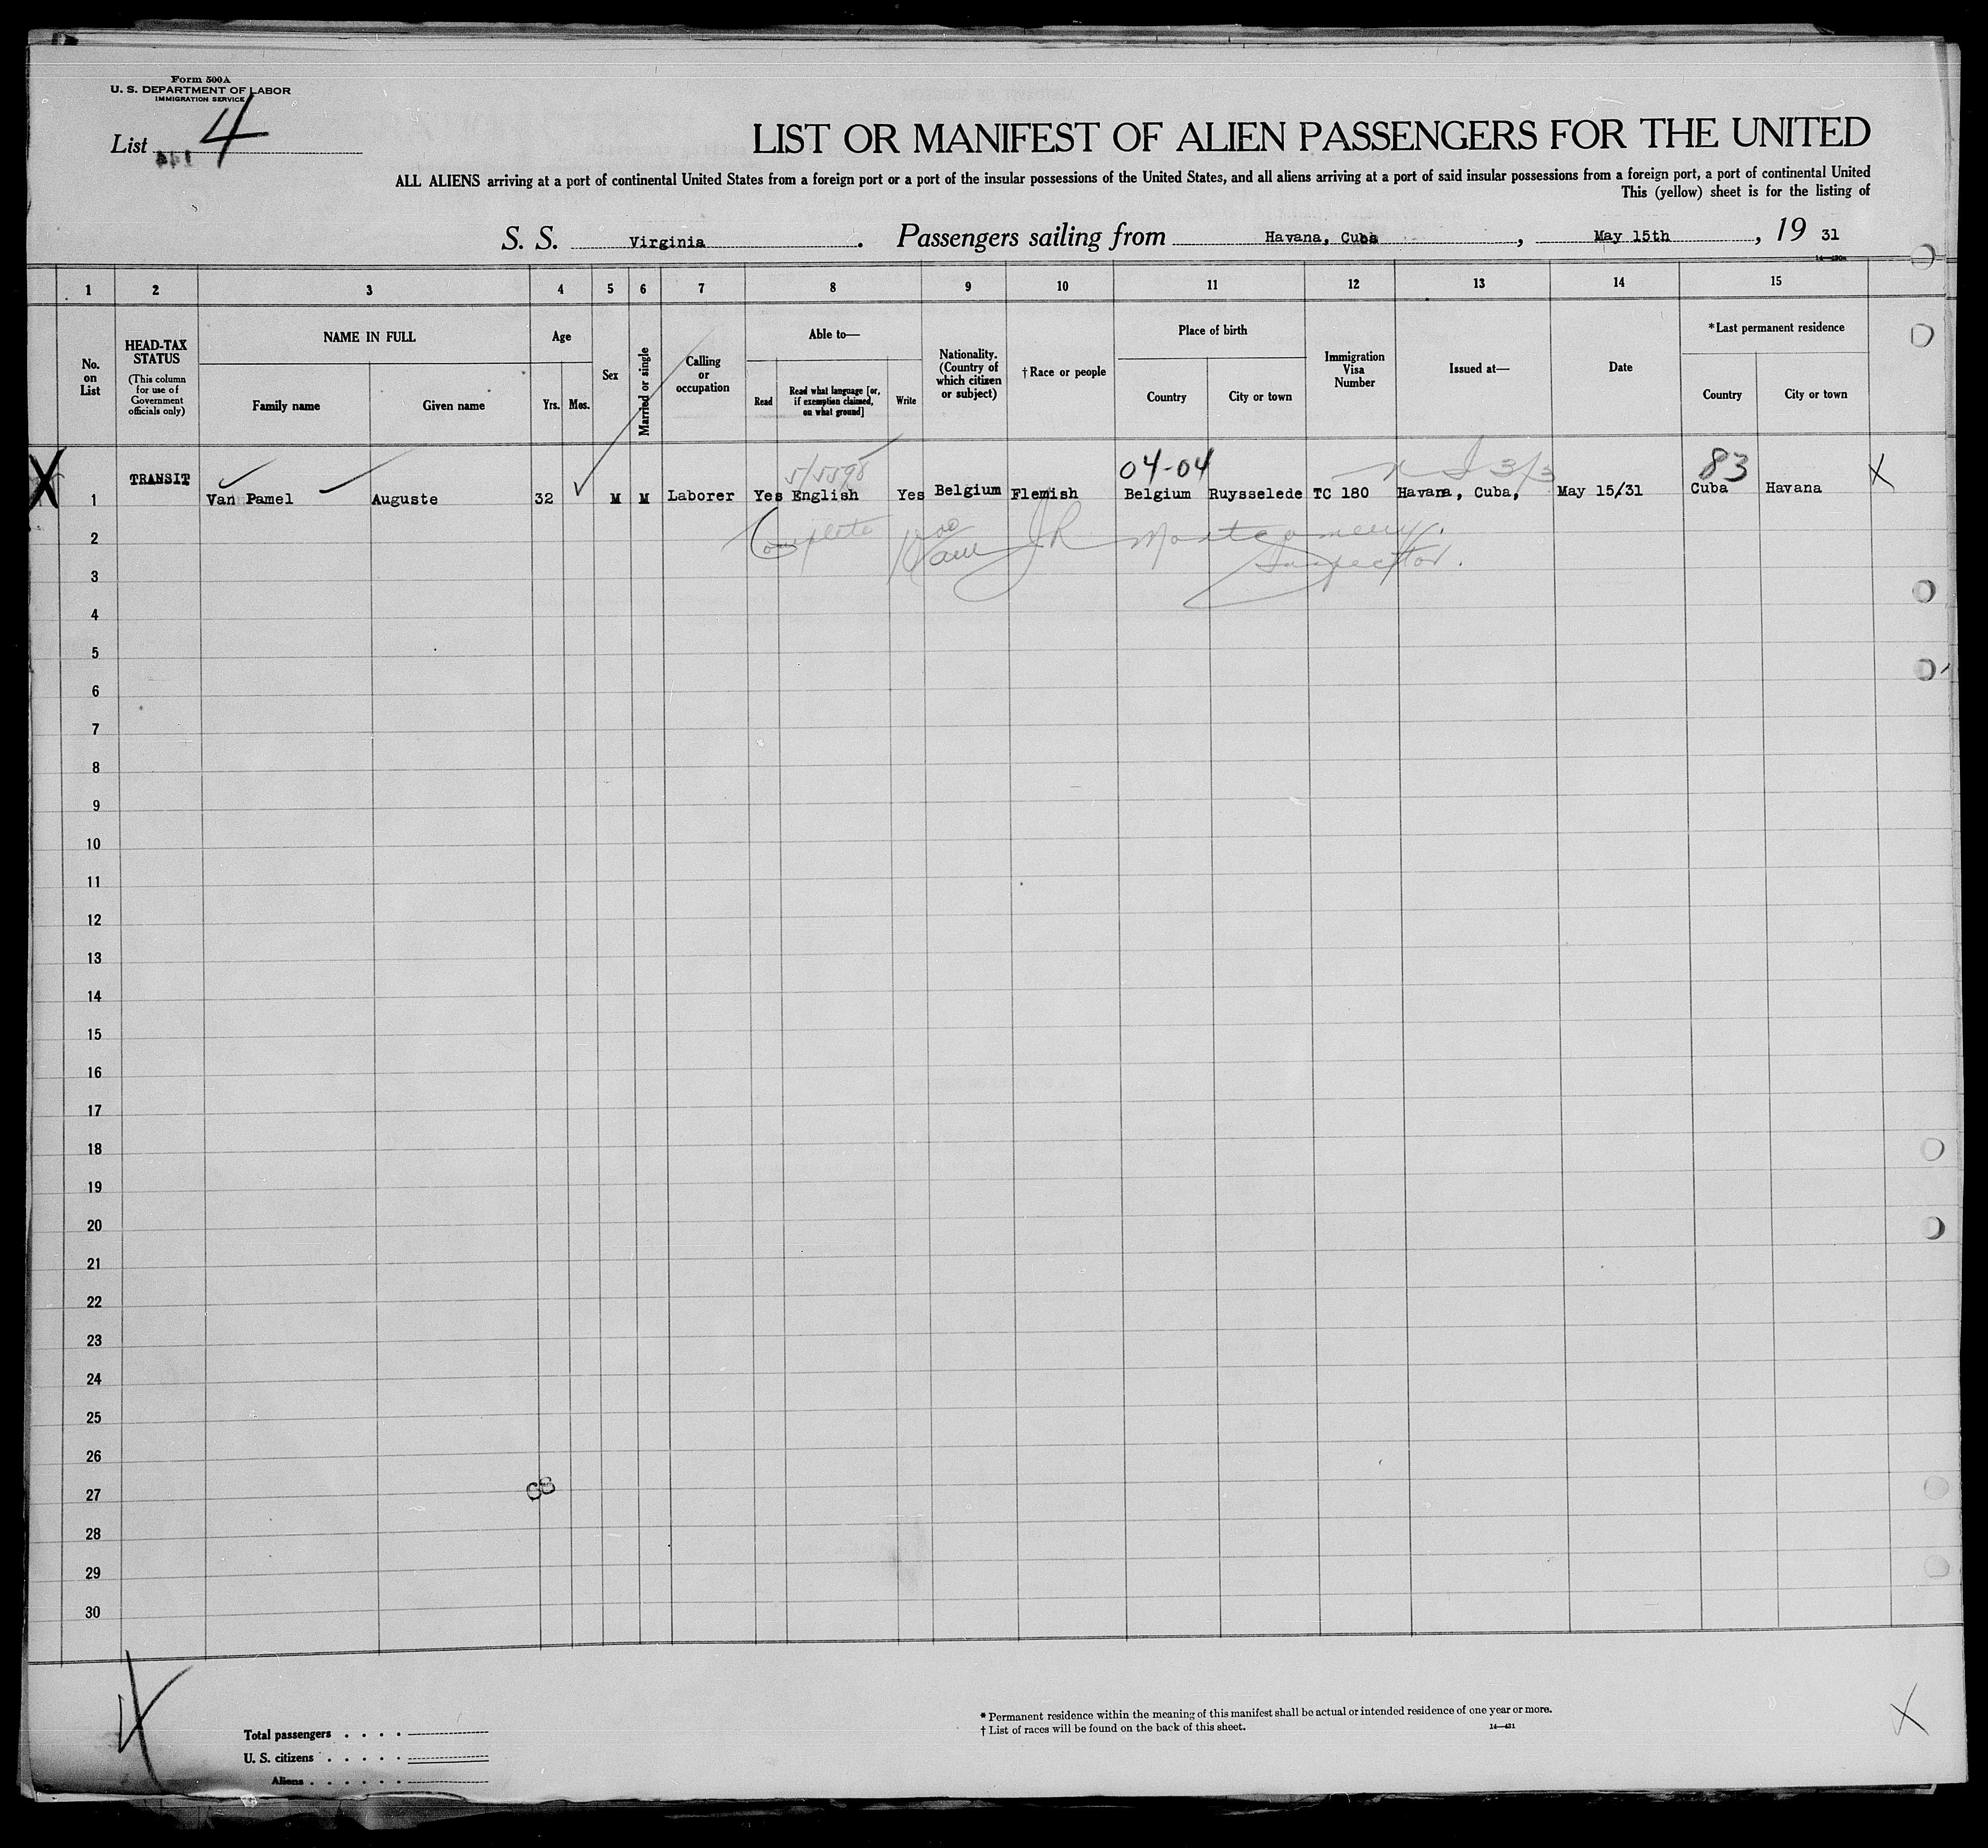 Form 500A
U. S. DEPARTMENT OF LABOR
IMMIGRATION SERVICE
List 4
LIST OR MANIFEST OF ALIEN PASSENGERS FOR THE UNITED
ALL ALIENS arriving at a port of continental United States from a foreign port or a port of the insular possessions of the United States, and all aliens arriving at a port of said insular possessions from a foreign port, a port of continental United
This (yellow) sheet is for the listing of
S. S. Virginia. Passengers sailing from Havana, Cuba, May 15th, 19 31
1 2 3 4 5 6 7 8 9 10 11 12 13 14 15
No. on List
HEAD-TAX STATUS
(This column for use of Government officials only)
NAME IN FULL
Family name
Given name
Age
Yrs. Mos.
Sex
Married or single
Calling or occupation
Able to—
Read
Read what language [or, if exemption claimed, on what ground]
Write
Nationality. (Country of which citizen or subject)
†Race or people
Place of birth
Country
City or town
Immigration Visa Number
Issued at—
Date
*Last permanent residence
Country
City or town
X
04-04
83
TRANSIT
1 Van Pamel Auguste 32 M M Laborer Yes English Yes Belgium Flemish Belgium Ruysselede TC 180 Havana, Cuba, May 15/31 Cuba Havana X
Complete
J R Montgomery.
Inspector.
2
3
4
5
6
7
8
9
10
11
12
13
14
15
16
17
18
19
20
21
22
23
24
25
26
27
28
29
30
Total passengers
U. S. citizens
Aliens
* Permanent residence within the meaning of this manifest shall be actual or intended residence of one year or more.
† List of races will be found on the back of this sheet.
14—431
X